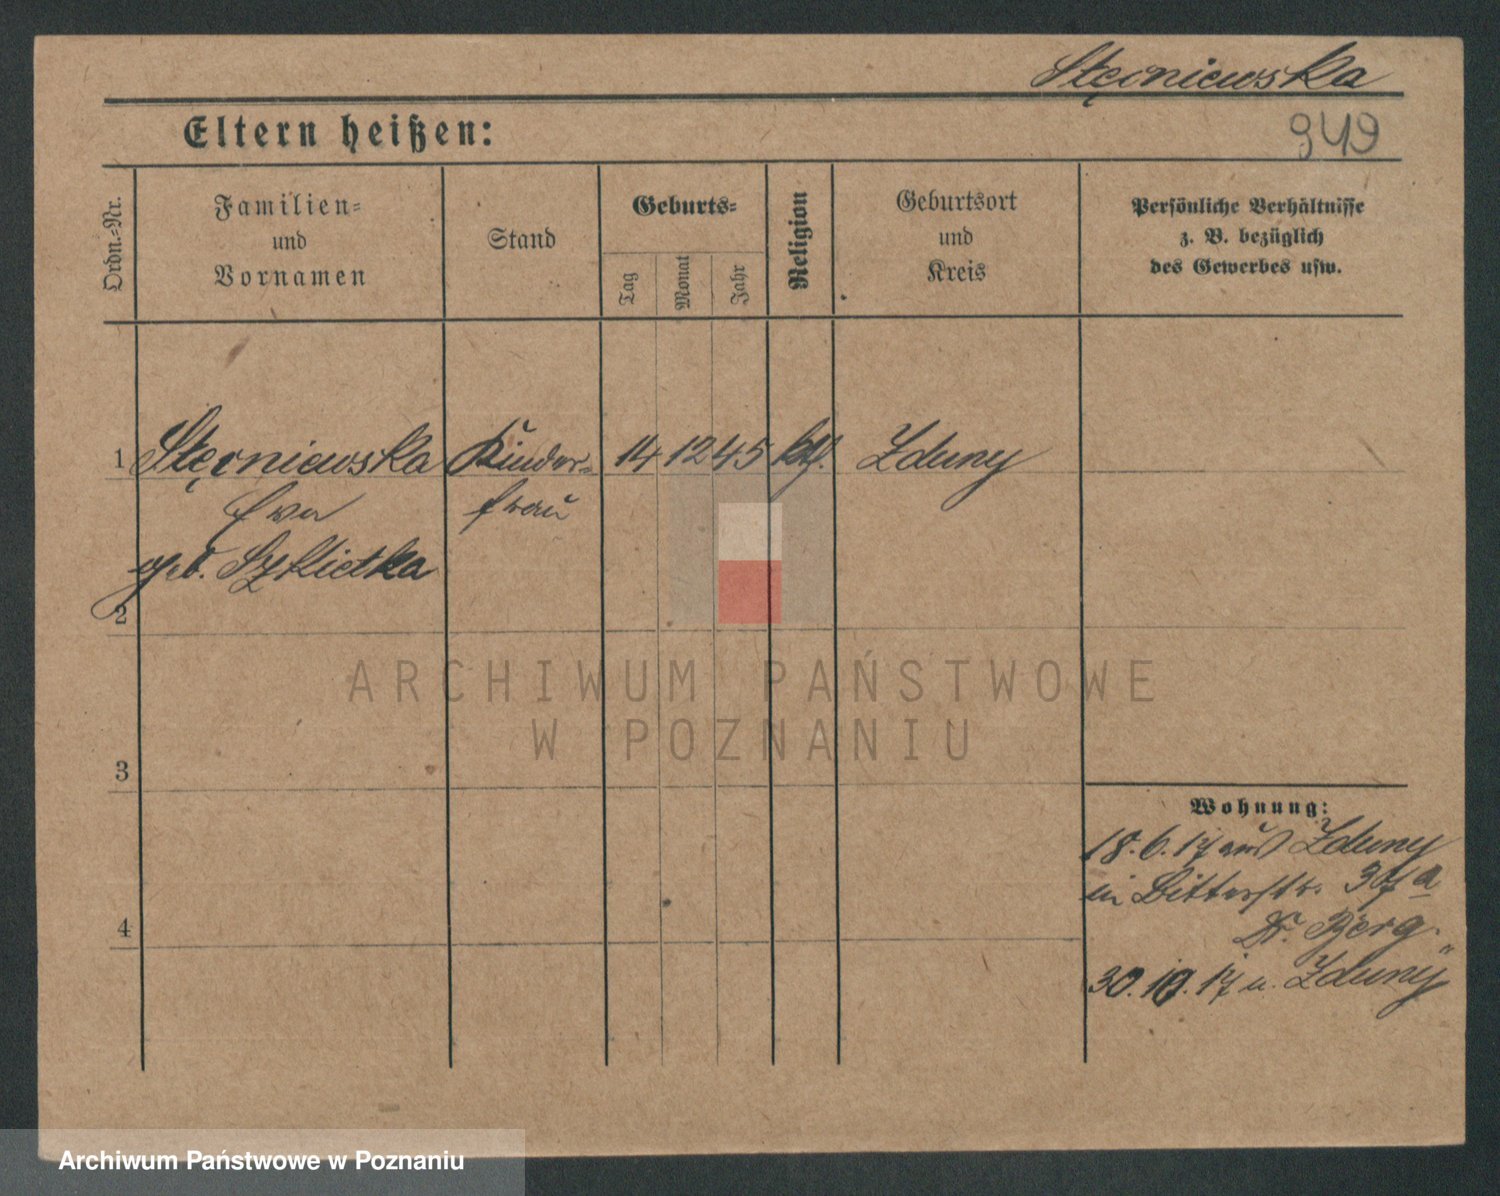 Stęrniewska
949
Eltern heißen:
Ordn.-Nr.
Familien-
und
Vornamen
Stand
Geburts-
Tag
Monat
Jahr
Religion
Geburtsort
und
Kreis
Persönliche Verhältnisse
z. B. bezüglich
des Gewerbes usw.
1 Stęrniewska Kinder- 14 12 45 kth. Zduny
Eva frau
geb. Szklietka
2
ARCHIWUM PAŃSTWOWE
W POZNANIU
3
Wohnung:
18.6.17 aus Zduny
in Ritterstr. 37 a
Dr. Berg.
4
30.10.17 n. Zduny
Archiwum Państwowe w Poznaniu